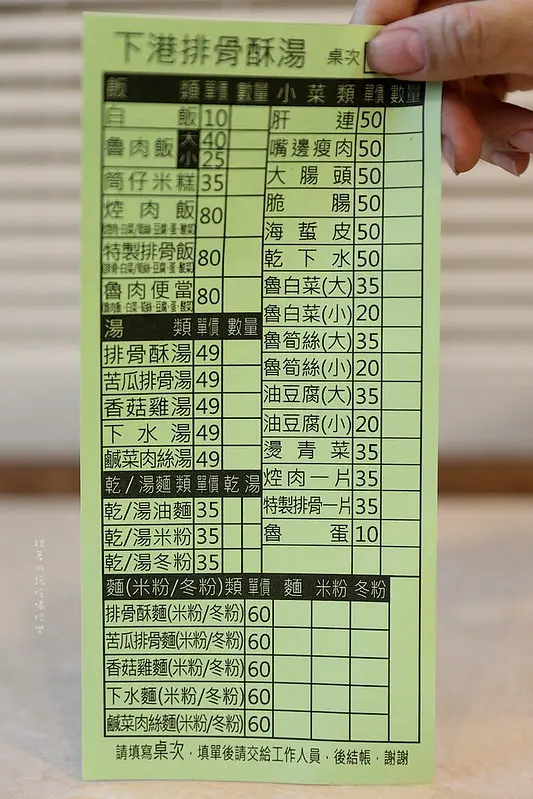 下港排骨酥湯 桌次
飯類 單價 數量
白飯 10
魯肉飯 大 40
小 25
筒仔米糕 35
焢肉飯 80
特製排骨飯 80
魯肉便當 80
湯類 單價 數量
排骨酥湯 49
苦瓜排骨湯 49
香菇雞湯 49
下水湯 49
鹹菜肉絲湯 49
乾/湯麵類 單價 乾 湯
乾/湯油麵 35
乾/湯米粉 35
乾/湯冬粉 35
小菜類 單價 數量
肝連 50
嘴邊瘦肉 50
大腸頭 50
脆腸 50
海蜇皮 50
乾下水 50
魯白菜(大) 35
魯白菜(小) 20
魯筍絲(大) 35
魯筍絲(小) 20
油豆腐(大) 35
油豆腐(小) 20
燙青菜 35
焢肉一片 35
特製排骨一片 35
魯蛋 10
麵(米粉/冬粉)類 單價 麵 米粉 冬粉
排骨酥麵(米粉/冬粉) 60
苦瓜排骨麵(米粉/冬粉) 60
香菇雞麵(米粉/冬粉) 60
下水麵(米粉/冬粉) 60
鹹菜肉絲麵(米粉/冬粉) 60
請填寫桌次，填單後請交給工作人員，後結帳，謝謝